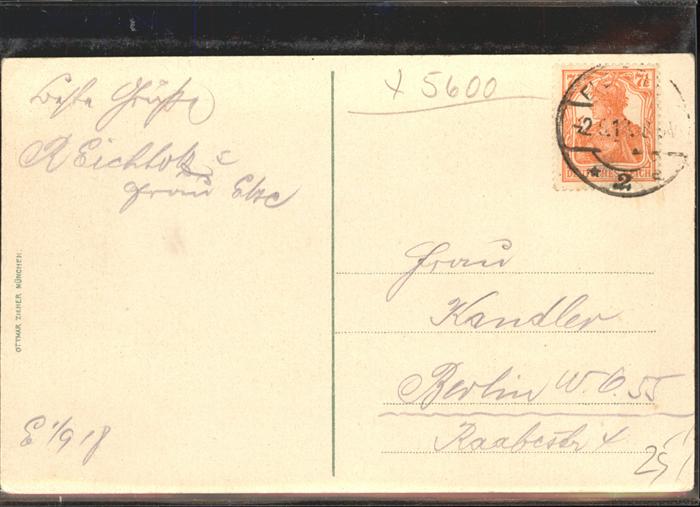 Beste Grüße
R Eichholz u
Frau Else
E 1/9 18
OTTMAR ZIEHER MÜNCHEN.
x 5600
7½
DEUTSCHES REICH
2
Frau
Kandler
Berlin W.O. 55
Raabestr 4
25